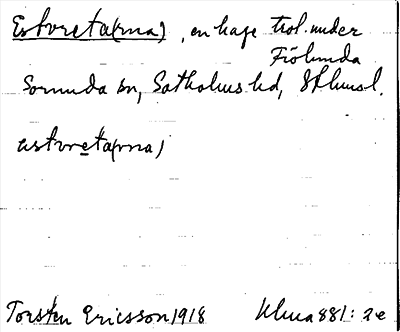 Estvreta(rna), en hage trol. under
Frölunda
Sorunda sn, Sotholms hd, Sthlmsl.
estvreta(rna)
Torsten Ericsson 1918 Uma 881: 2e